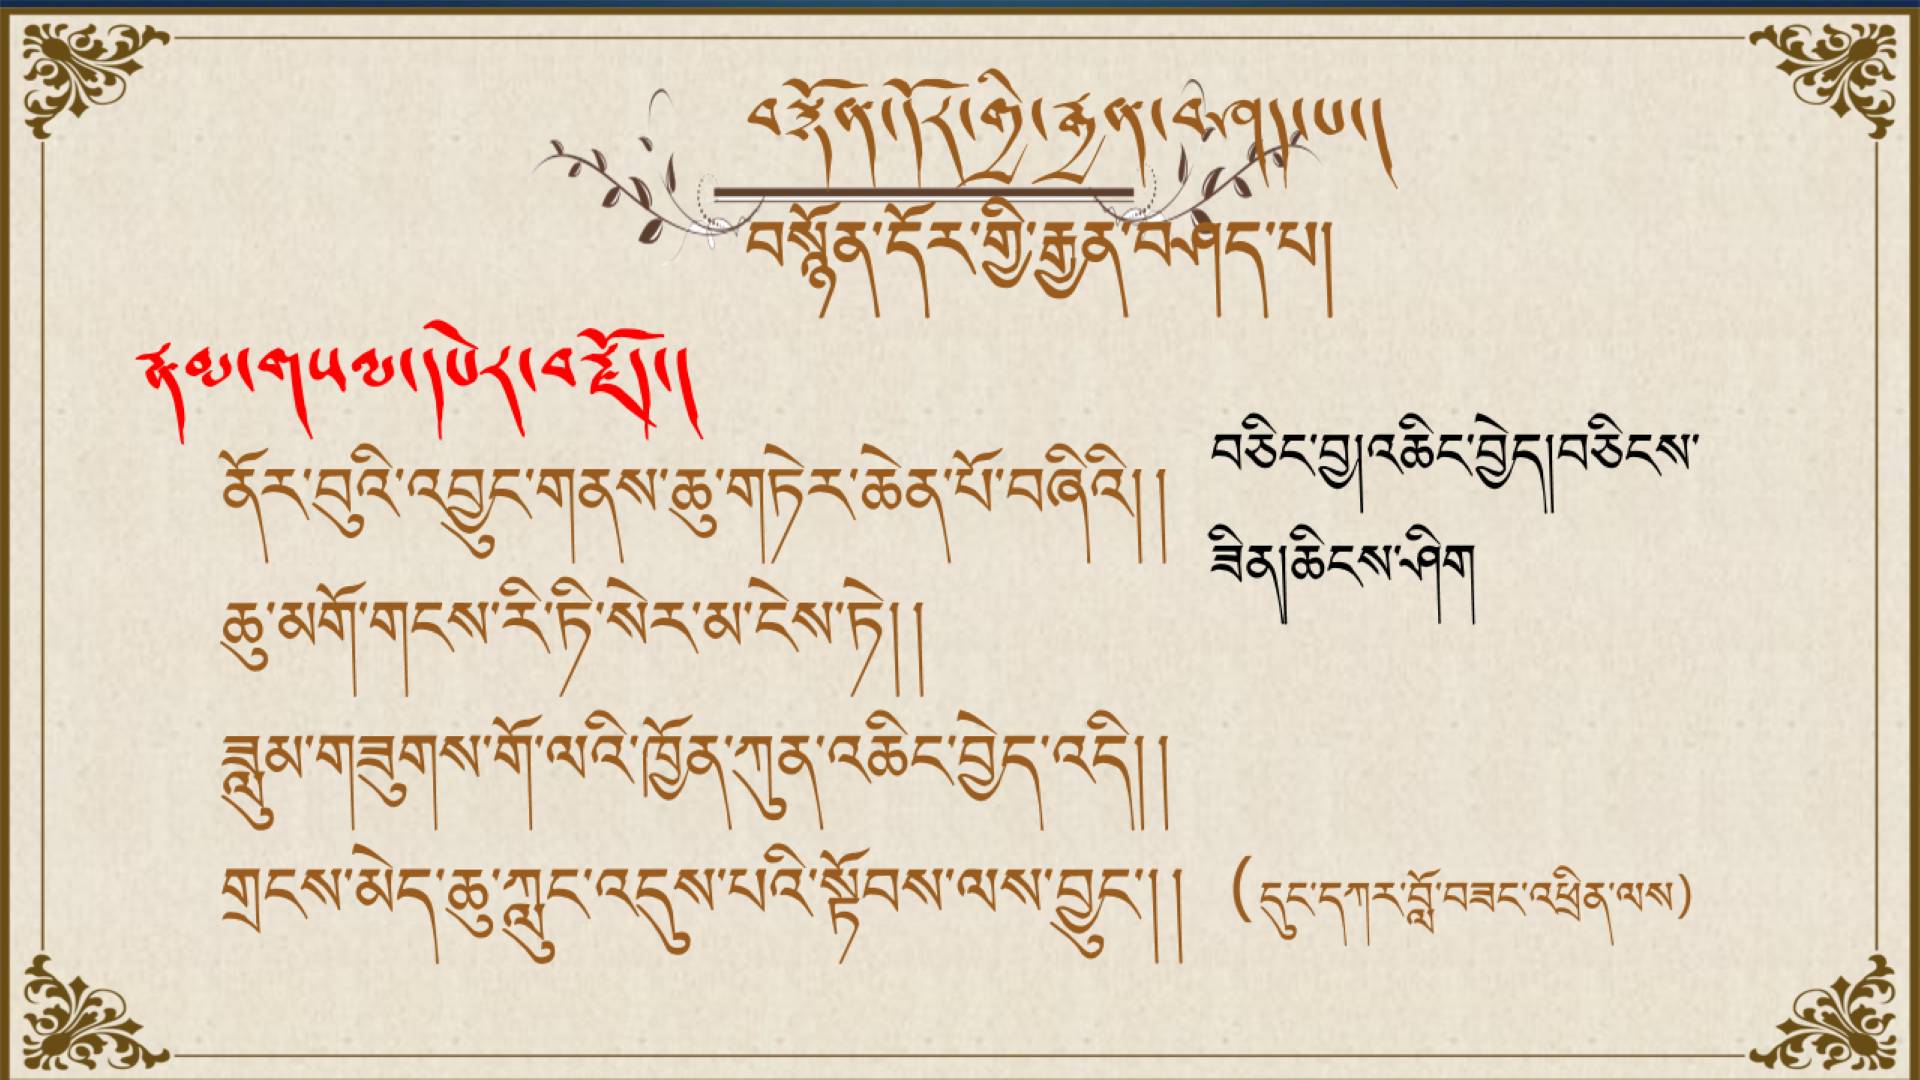 བསྙོན་དོར་གྱི་རྒྱན་བཤད་པ།
བསྙོན་དོར་གྱི་རྒྱན་བཤད་པ།
ནོར་བུའི་འབྱུང་གནས་ཆུ་གཏེར་ཆེན་པོ་བཞིའི།།
བཅིང་བྱ།འཆིང་བྱེད།བཅིངས་
ཟིན།ཆིངས་ཤིག
ཆུ་མགོ་གངས་རི་ཏི་སེར་མ་ངེས་ཏེ།།
ཟླུམ་གཟུགས་གོ་ལའི་ཁྱོན་ཀུན་འཆིང་བྱེད་འདི།།
གྲངས་མེད་ཆུ་ཀླུང་འདུས་པའི་སྟོབས་ལས་བྱུང་།།
(དུང་དཀར་བློ་བཟང་འཕྲིན་ལས)